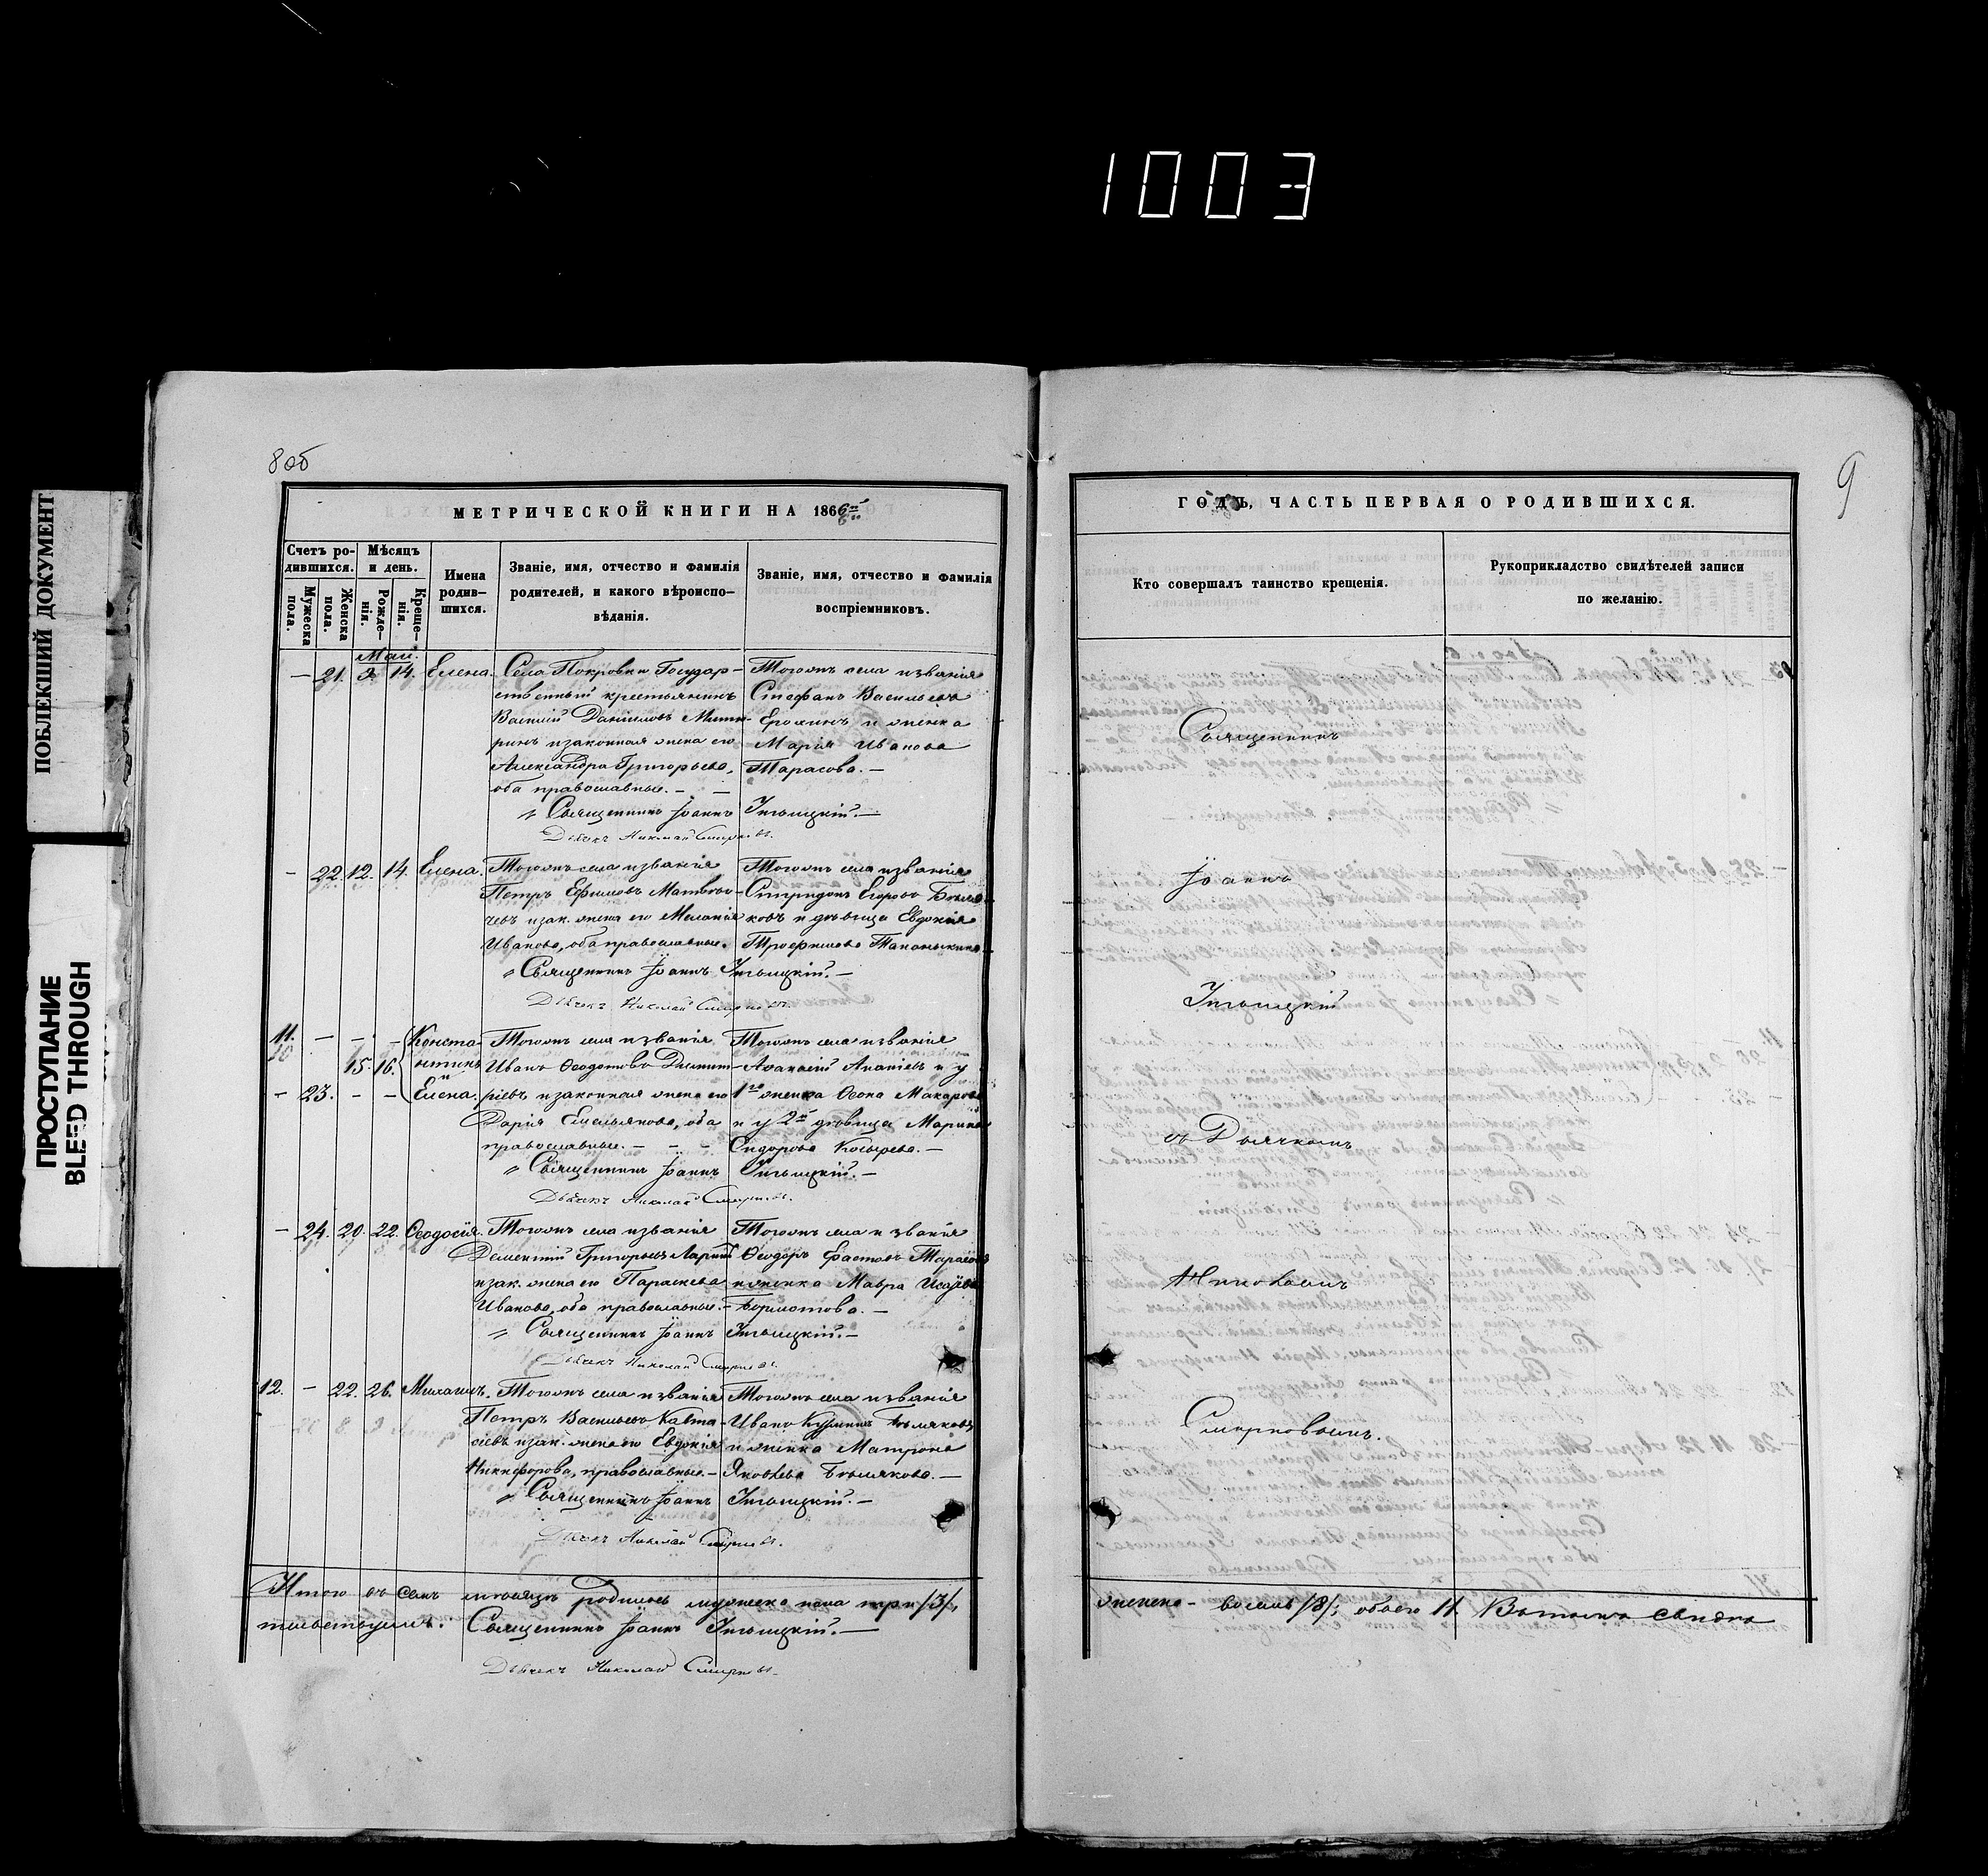 1003
ПОБЛЕКШИЙ ДОКУМЕНТ
ПРОСТУПАНИЕ
BLEED THROUGH
8об
МЕТРИЧЕСКОЙ КНИГИ НА 1866й
Счетъ ро-
дившихся.
Мѣсяцъ
и день.
Мужеска
пола.
Женска
пола.
Рожде-
нія.
Креще-
нія.
Имена
родив-
шихся.
Званіе, имя, отчество и фамилія
родителей, и какого вѣроиспо-
вѣданія.
Званіе, имя, отчество и фамилія
воспріемниковъ.
Май.
— 21. 3. 14. Елена. Села Покровки Государ-
ственный крестьянинъ
Василій Даніиловъ
и законная жена его
Александра Григорьева,
оба православные. —
Тогожъ села и званія
Стефанъ Васильевъ
Ерохинъ и женка
Марія Иванова
Тарасова. —
Священникъ Іоаннъ
Дьячекъ Николай Смирновъ.
— 22. 12. 14. Елена. Тогожъ села и званія
Петръ Ефимовъ Матвѣи-
чевъ и зак. жена его Меланія
Иванова, оба православные.
Тогожъ села и званія
Спиридонъ Егоровъ Бѣля-
ковъ и дѣвица Евдокія
Трофимова
Священникъ Іоаннъ
Дьячекъ Николай Смирновъ.
11. — — —
15. 16.
— 23. — —
Конста-
нтинъ
и
Елена.
Тогожъ села и званія
Иванъ Ѳеодотовъ Димит-
ріевъ и законная жена его
Дарія Емельянова, оба
православные. — — —
Тогожъ села и званія
Аѳанасій Ананіевъ и у
1го женка Макарова
и у 2й дѣвица Марина
Сидорова Косырева. —
Священникъ Іоаннъ
Дьячекъ Николай Смирновъ.
— 24. 20. 22. Ѳеодосія. Тогожъ села и званія
Дементій Григорьевъ Ларинъ
и зак. жена его Параскева
Иванова, оба православные. —
Тогожъ села и званія
Ѳеодоръ Тарасовъ
и женка Мавра Исаева
Бормотова. —
Священникъ Іоаннъ
Дьячекъ Николай Смирновъ.
12. — 22. 26. Михаилъ. Тогожъ села и званія
Петръ Васильевъ Кавта-
сіевъ и зак. жена его Евдокія
Никифорова, православные. —
Тогожъ села и званія
Иванъ Кузминъ Бѣляковъ
и женка Матрона
Яковлева Бѣлякова. —
Священникъ Іоаннъ
Дьячекъ Николай Смирновъ.
Итого въ семъ мѣсяцѣ родилось мужеска пола три /3/,
тельствуемъ. Священникъ Іоаннъ
Дьячекъ Николай Смирновъ.
9
ГОДЪ, ЧАСТЬ ПЕРВАЯ О РОДИВШИХСЯ.
Кто совершалъ таинство крещенія.
Рукоприкладство свидѣтелей записи
по желанію.
Священникъ
Іоаннъ
съ Дьячкомъ
Николаемъ
Смирновымъ.
женска — восемь /8/; обоего 11. В томъ и свидѣ